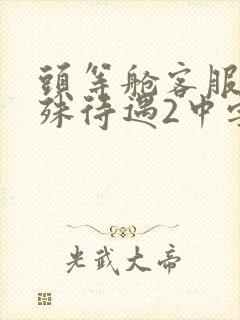 頭等舱客服
殊待遇2中字
光武大帝